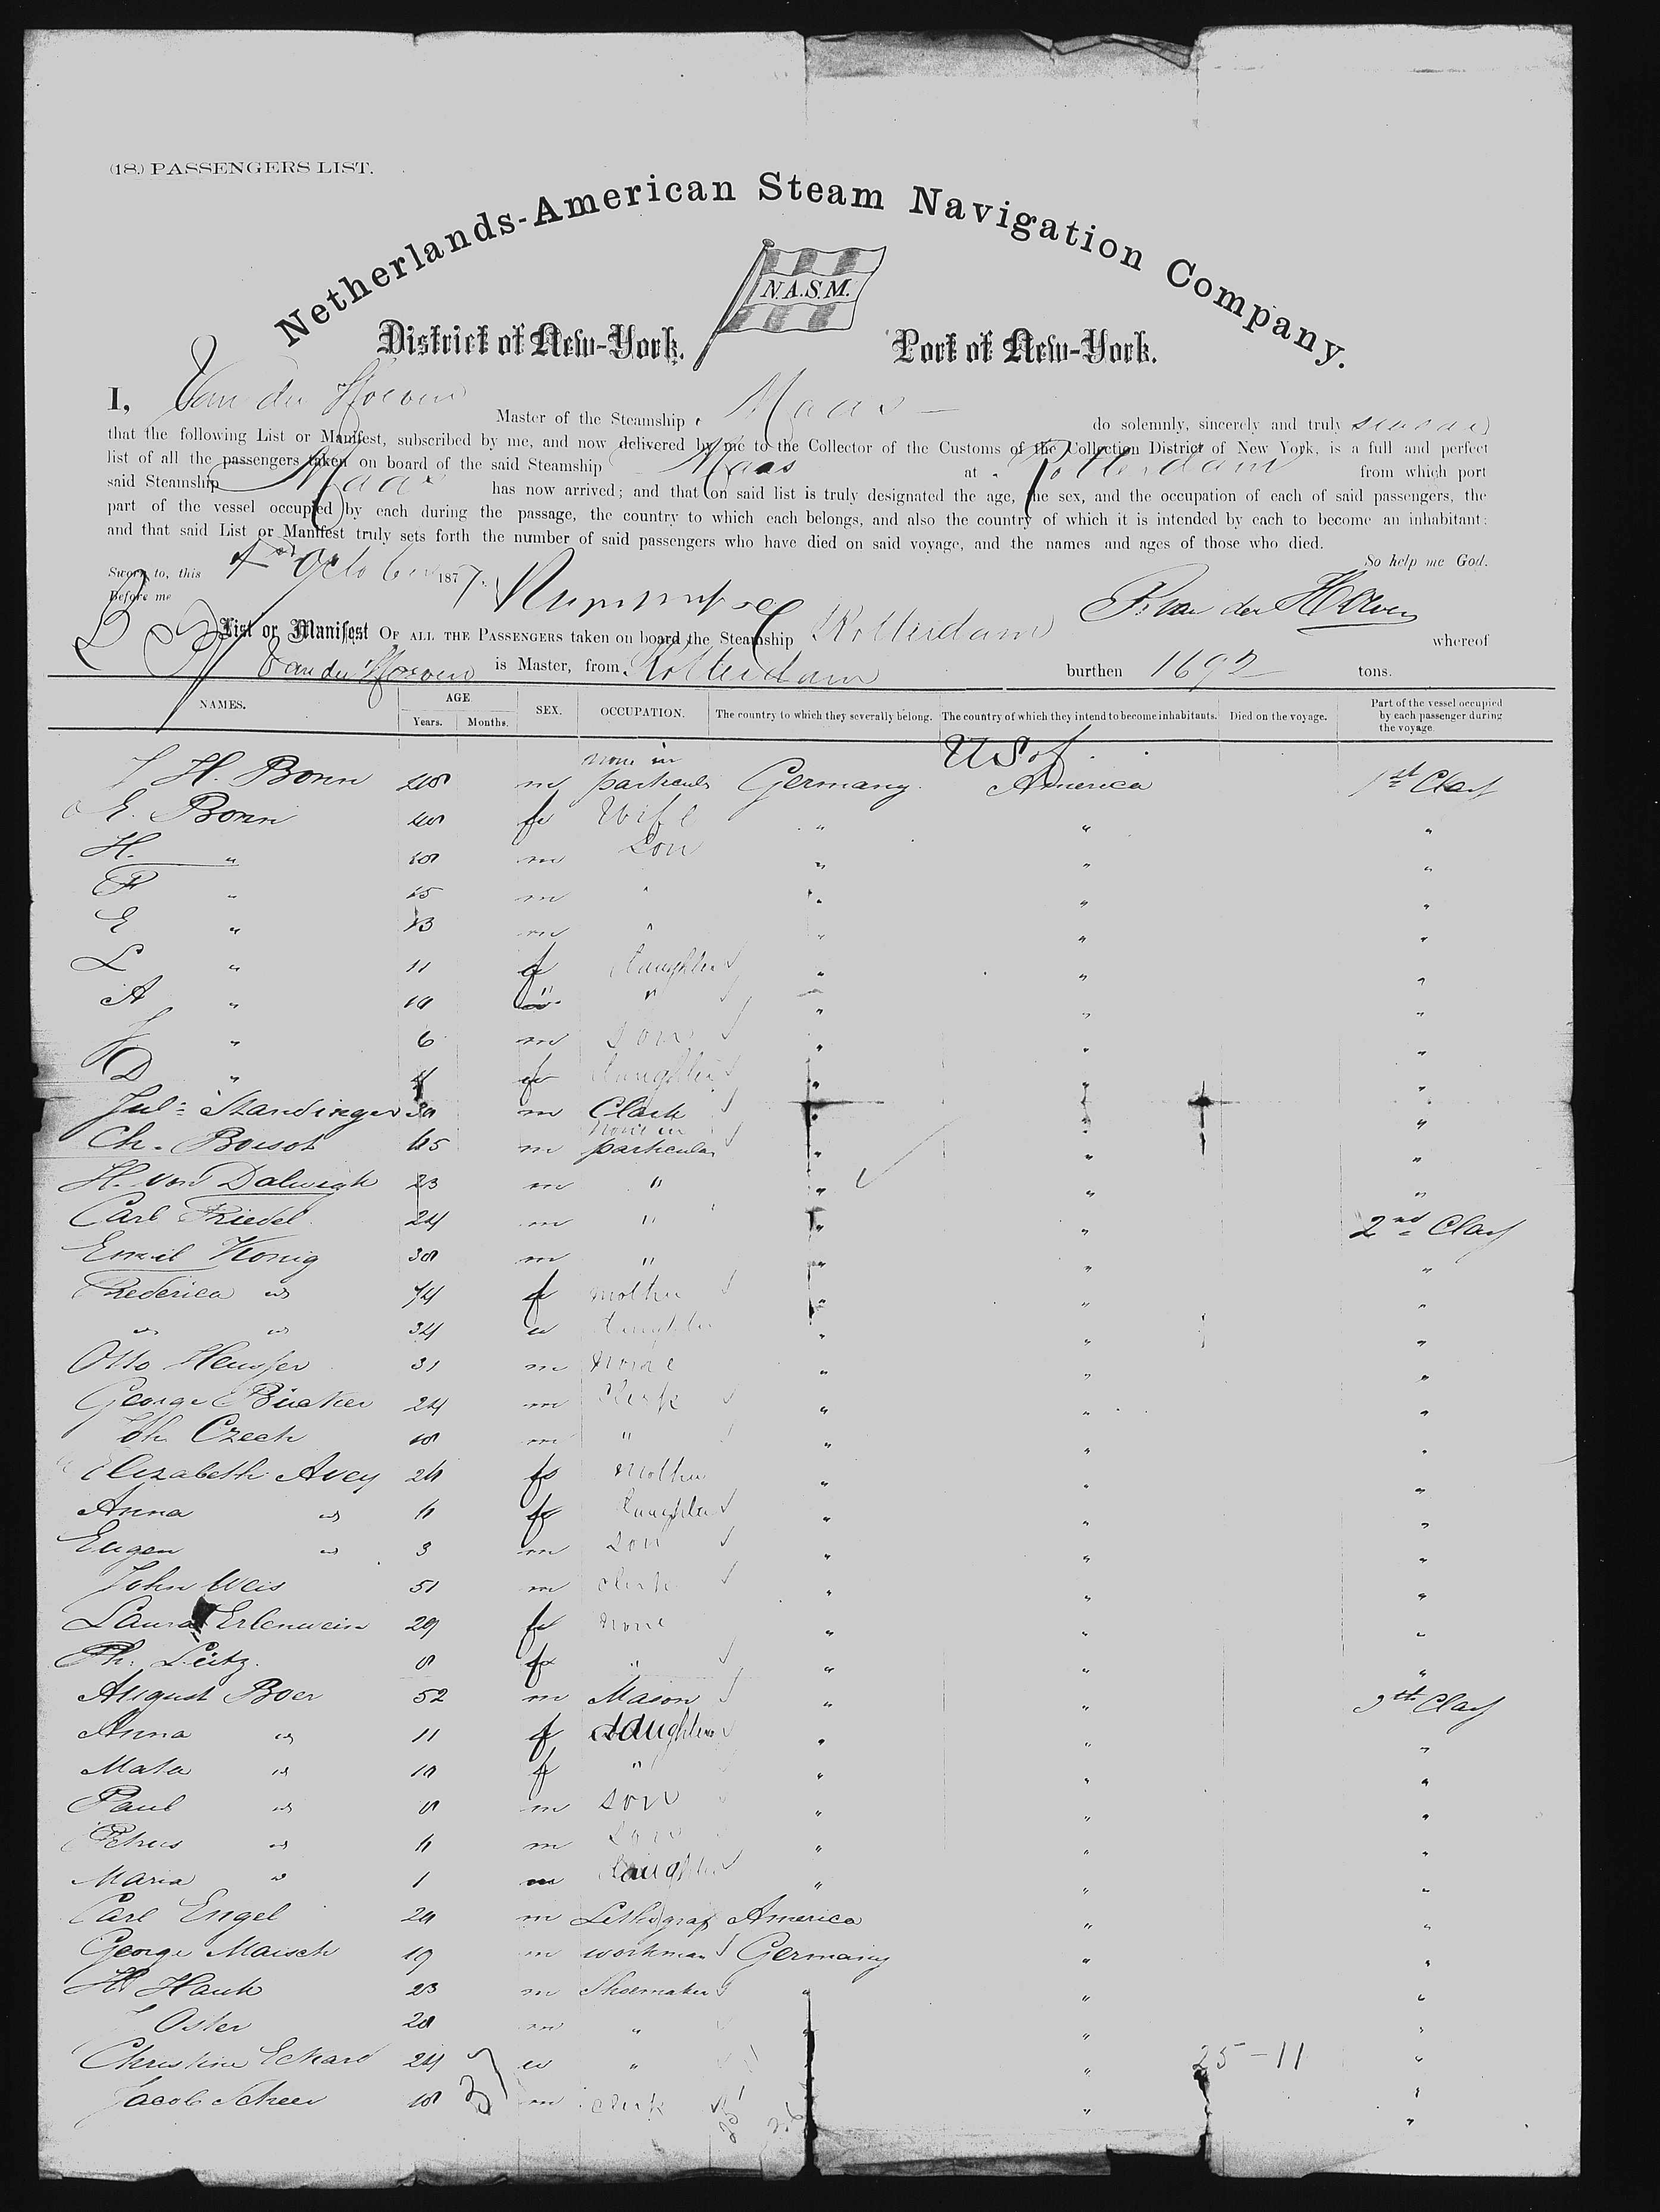 (18.) PASSENGERS LIST.
Netherlands-American Steam Navigation Company.
N.A.S.M.
District of New-York. Port of New-York.
I, Van der Hoeven Master of the Steamship Maas do solemnly, sincerely and truly swear
that the following List or Manifest, subscribed by me, and now delivered by me to the Collector of the Customs of the Collection District of New York, is a full and perfect
list of all the passengers taken on board of the said Steamship Maas at Rotterdam from which port
said Steamship Maas has now arrived; and that on said list is truly designated the age, the sex, and the occupation of each of said passengers, the
part of the vessel occupied by each during the passage, the country to which each belongs, and also the country of which it is intended by each to become an inhabitant;
and that said List or Manifest truly sets forth the number of said passengers who have died on said voyage, and the names and ages of those who died.
So help me God.
Sworn to, this 4 October 1877.
Before me
P. van der Hoeven
List or Manifest OF ALL THE PASSENGERS taken on board the Steamship Rotterdam whereof
Van der Hoeven is Master, from Rotterdam burthen 1692 tons.
NAMES. AGE Years. Months. SEX. OCCUPATION. The country to which they severally belong. The country of which they intend to become inhabitants. Died on the voyage. Part of the vessel occupied by each passenger during the voyage
J H. Bonn 48 m none in particular Germany. US of America 1st Class
E. Bonn 48 f Wife " " "
H. " 18 m Son " " "
F " 15 m " " " "
E " 13 m " " " "
L " 11 f daughter " " "
A " 10 " " " " "
J " 6 m son " " "
D " 4 f daughter " " "
Jul: Standinger 30 m Clark " " "
Ch. Boisot 45 m none in particular " " "
H. von Dalwigk 23 m " " " "
Carl Riedel 24 m " " " 2nd Class
Emil Konig 38 m " " " "
Frederica " 74 f mother " " "
" " 34 " daughter " " "
Otto Heusser 31 m none " " "
George Bücker 24 m Clerk " " "
Joh. Czech 18 m " " " "
Elizabeth Avey 24 f mother " " "
Anna " 4 f daughter " " "
Eugen " 3 m son " " "
John Weis 51 m clerk " " "
Laura Erlenwein 29 f none " " "
Ph. Leitz. 8 f " " " "
August Boer 52 m Mason " " 3th Class
Anna " 11 f daughter " " "
Mata " 10 f " " " "
Paul " 8 m son " " "
Petrus " 4 m son " " "
Maria " 1 m daughter " " "
Carl Engel 20 m Lithograf America " "
George Maisch 19 m workman Germany " "
H Hauk 23 m Shoemaker " " "
J Oster 20 m " " " "
Christine Eckard 24 " " " "
Jacob Scheer 18 m clerk " "
25-11